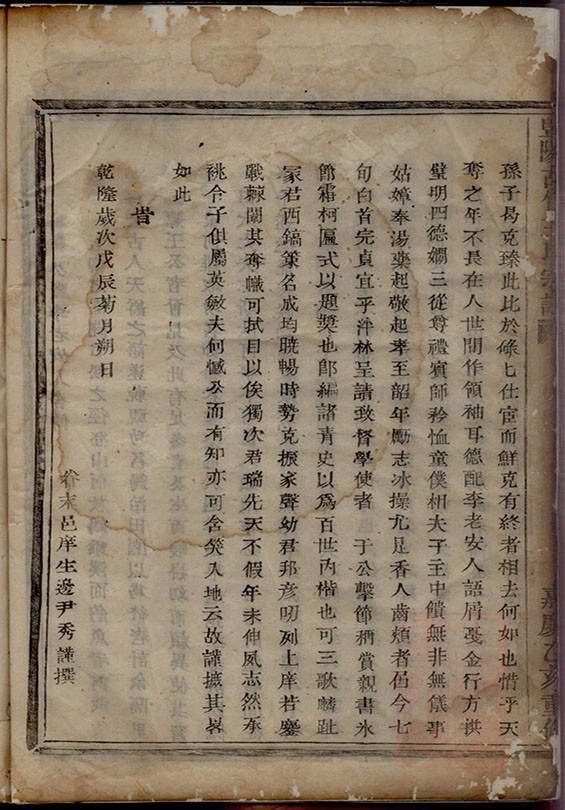 孫子曷克臻此比於碌七仕宦而鮮克有終者相去何如也惜乎天
奪之年不畏在人世間作領袖耳德配李老安人語屑戞金行方拱
璧明四德嫻三從尊禮賓師矜恤童僕相夫子主中饋無非無儀事
姑嫜奉湯藥起敬起孝至韶年勵志冰操尤足香人齒頰者侣今七
旬白首完貞宜乎泮林呈請致督學使者 于公擊節稱賞親書氷
節霜柯匾式以題奬也郎編諸青史以為百世內楷也可三歌麟趾
冢君西鎬䇿名成均曉暢時勢克振家聲幼君邦彦叨列上庠若鏖
戰棘闈其奪幟可拭目以俟獨次君瑞先天不假年未伸夙志然承
祧令子俱屬英敏夫何憾公而有知亦可含笑入地云故謹摭其畧
如此
旹
乾隆歲次戊辰菊月朔日
眷末邑庠生邊尹秀謹撰
嘉慶乙亥重修